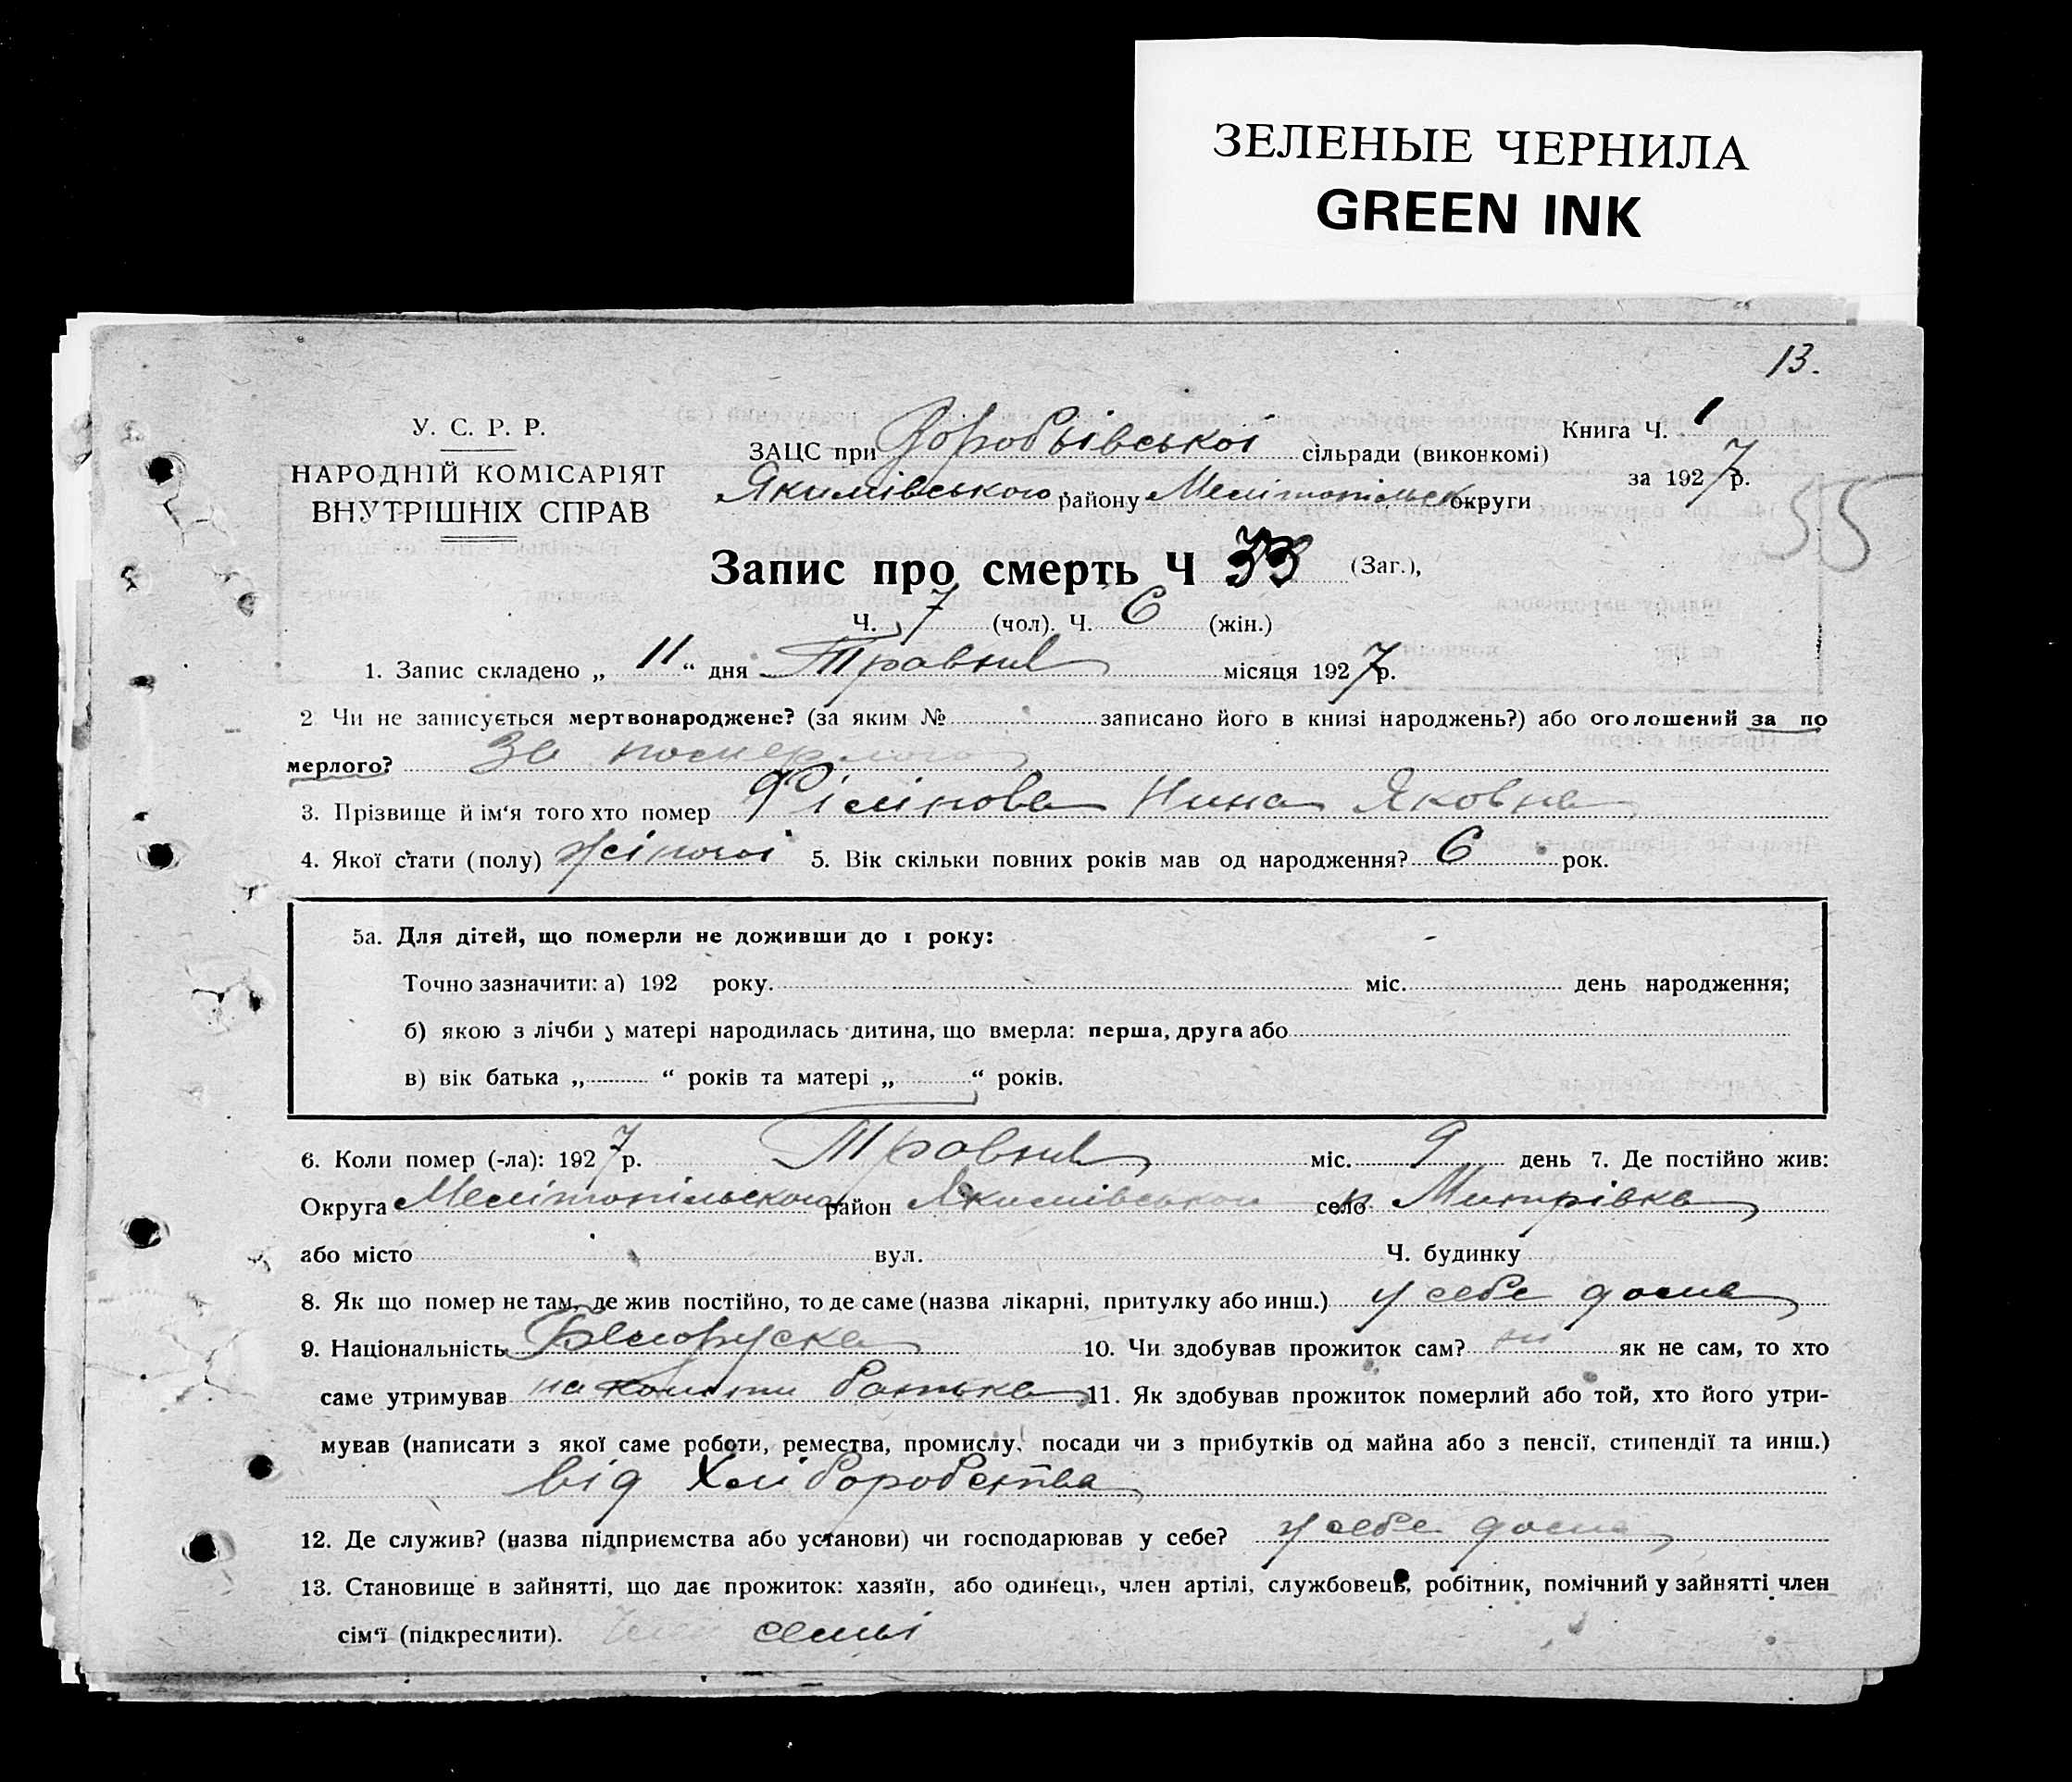 ЗЕЛЕНЫЕ ЧЕРНИЛА
GREEN INK
13.
У. С. Р. Р.
НАРОДНІЙ КОМІСАРІЯТ
ВНУТРІШНІХ СПРАВ
ЗАЦС при Воробьівської сільради (виконкомі)
Якимівського району Мелітопільськ округи
Книга Ч. 1
за 1927 р.
55
Запис про смерть Ч 33 (Заг.),
Ч. 7 (чол). Ч. 6 (жін.)
1. Запис складено „ 11 “ дня Травня місяця 1927 р.
2 Чи не записується мертвонароджене? (за яким № записано його в книзі народжень?) або оголошений за по
мерлого? За померлого
3. Прізвище й ім‘я того хто помер Філінова Нина Яковна
4. Якої стати (полу) жіночої 5. Вік скільки повних років мав од народження? 6 рок.
5а. Для дітей, що померли не доживши до 1 року:
Точно зазначити: а) 192 року. міс. день народження;
б) якою з лічби у матері народилась дитина, що вмерла: перша, друга або
в) вік батька „ “ років та матері „ “ років.
6. Коли помер (-ла): 1927 р. Травня міс. 9 день 7. Де постійно жив:
Округа Мелітопільського район Якимівського село
або місто вул. Ч. будинку
8. Як що помер не там, де жив постійно, то де саме (назва лікарні, притулку або инш.) у себе дома
9. Національність Белоруска 10. Чи здобував прожиток сам? ні як не сам, то хто
саме утримував на кошти батька 11. Як здобував прожиток померлий або той, хто його утри-
мував (написати з якої саме роботи, ремества, промислу, посади чи з прибутків од майна або з пенсії, стипендії та инш.)
від Хліборобства
12. Де служив? (назва підприємства або установи) чи господарював у себе? у себе дома
13. Становище в зайнятті, що дає прожиток: хазяїн, або одинець, член артілі, службовець, робітник, помічний у зайнятті член
сім‘ї (підкреслити). член семьі